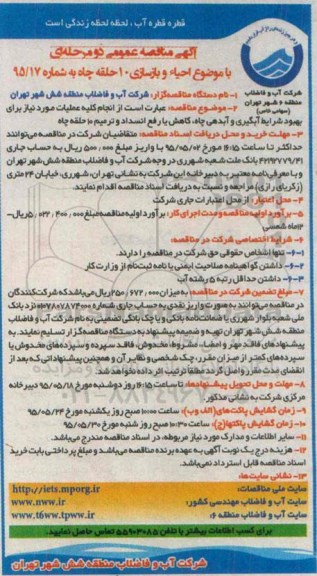 قطره قطره آب ، لحظه لحظه زندگی است
آگهی مناقصه عمومی دو مرحله‌ای
با موضوع احیاء و بازسازی ۱۰ حلقه چاه به شماره ۹۵/۱۷
شرکت آب و فاضلاب
منطقه ۶ شهر تهران
(سهامی خاص)
۱- نام دستگاه مناقصه‌گزار: شرکت آب و فاضلاب منطقه شش شهر تهران
۲- موضوع مناقصه: عبارت است از انجام کلیه عملیات مورد نیاز برای
بهبود شرایط آبگیری و آبدهی چاه، کاهش یا رفع انسداد و ترمیم ۱۰ حلقه چاه
۳- مهلت خرید و محل دریافت اسناد مناقصه: متقاضیان شرکت در مناقصه می‌توانند
حداکثر تا ساعت ۱۶:۱۵ مورخ ۹۵/۰۵/۰۲ با واریز مبلغ ۵۰۰,۰۰۰ ریال به حساب جاری
۴۲۹۲۷۷۹/۴۱ بانک ملت شعبه شهرری در وجه شرکت آب و فاضلاب منطقه شش شهر تهران
و با معرفی‌نامه معتبر به دبیرخانه این شرکت به نشانی تهران، شهرری، خیابان ۲۴ متری
(زکریای رازی) مراجعه و نسبت به دریافت اسناد مناقصه اقدام نمایند.
۴- محل اعتبار: از محل اعتبارات جاری شرکت
۵- برآورد اولیه مناقصه و مدت اجرای کار: برآورد اولیه مناقصه مبلغ ۵,۰۲۲,۴۰۰,۰۰۰ ریال-
۱۲ماه شمسی
۶- شرایط اختصاصی شرکت در مناقصه:
۱-۶- تنها اشخاص حقوقی حق شرکت در مناقصه را دارند.
۲-۶- داشتن گواهینامه صلاحیت ایمنی یا نامه ثبت‌نام از وزارت کار
۳-۶- داشتن حداقل رتبه ۵ رشته آب
۷- مبلغ تضمین شرکت در مناقصه: به میزان ۲۵۰,۶۷۲,۰۰۰ ریال می‌باشد که شرکت‌کنندگان
در مناقصه می‌توانند به صورت واریز نقدی به حساب جاری شماره نزد بانک
ملی شعبه بلوار شهرری یا ضمانت‌نامه بانکی و یا چک بانکی تضمینی به نام شرکت آب و فاضلاب
منطقه شش شهر تهران تهیه و ضمیمه پیشنهاد به دستگاه مناقصه‌گزار تسلیم نمایند. به
پیشنهادهای فاقد مهر و امضاء، مشروط، مخدوش، فاقد سپرده و سپرده‌های مخدوش یا
سپرده‌های کمتر از میزان مقرر، چک شخصی و نظایر آن و همچنین پیشنهاداتی که بعد از
انقضای مدت مقرر واصل گردد مطلقا ترتیب اثر داده نخواهد شد.
۸- مهلت و محل تحویل پیشنهادها: تا ساعت ۱۶:۱۵ روز دوشنبه مورخ ۹۵/۰۵/۱۸ دبیرخانه
مرکزی شرکت به نشانی مذکور
۹- زمان گشایش پاکت‌های (الف و ب): ساعت ۱۰:۰۰ صبح روز یکشنبه مورخ ۹۵/۰۵/۲۴
۱۰- زمان گشایش پاکتها(ج): ساعت ۱۰:۳۰ صبح روز شنبه مورخ ۹۵/۰۵/۳۰
۱۱- سایر اطلاعات و مدارک مورد نیاز مربوطه، در اسناد مناقصه مندرج می‌باشد.
۱۲- هزینه درج یک نوبت آگهی به عهده برنده مناقصه می‌باشد و مبلغ پرداختی بابت خرید
اسناد مناقصه قابل استرداد نمی‌باشد.
۱۳- نشانی سایت‌ها:
سایت ملی مناقصات: http://iets.mporg.ir
سایت آب و فاضلاب مهندسی کشور: www.nww.ir
سایت آب و فاضلاب منطقه ۶: www.t6ww.tpww.ir
برای کسب اطلاعات بیشتر با تلفن ۵۵۹۰۳۰۸۵ تماس حاصل نمایید.
شرکت آب و فاضلاب منطقه شش شهر تهران